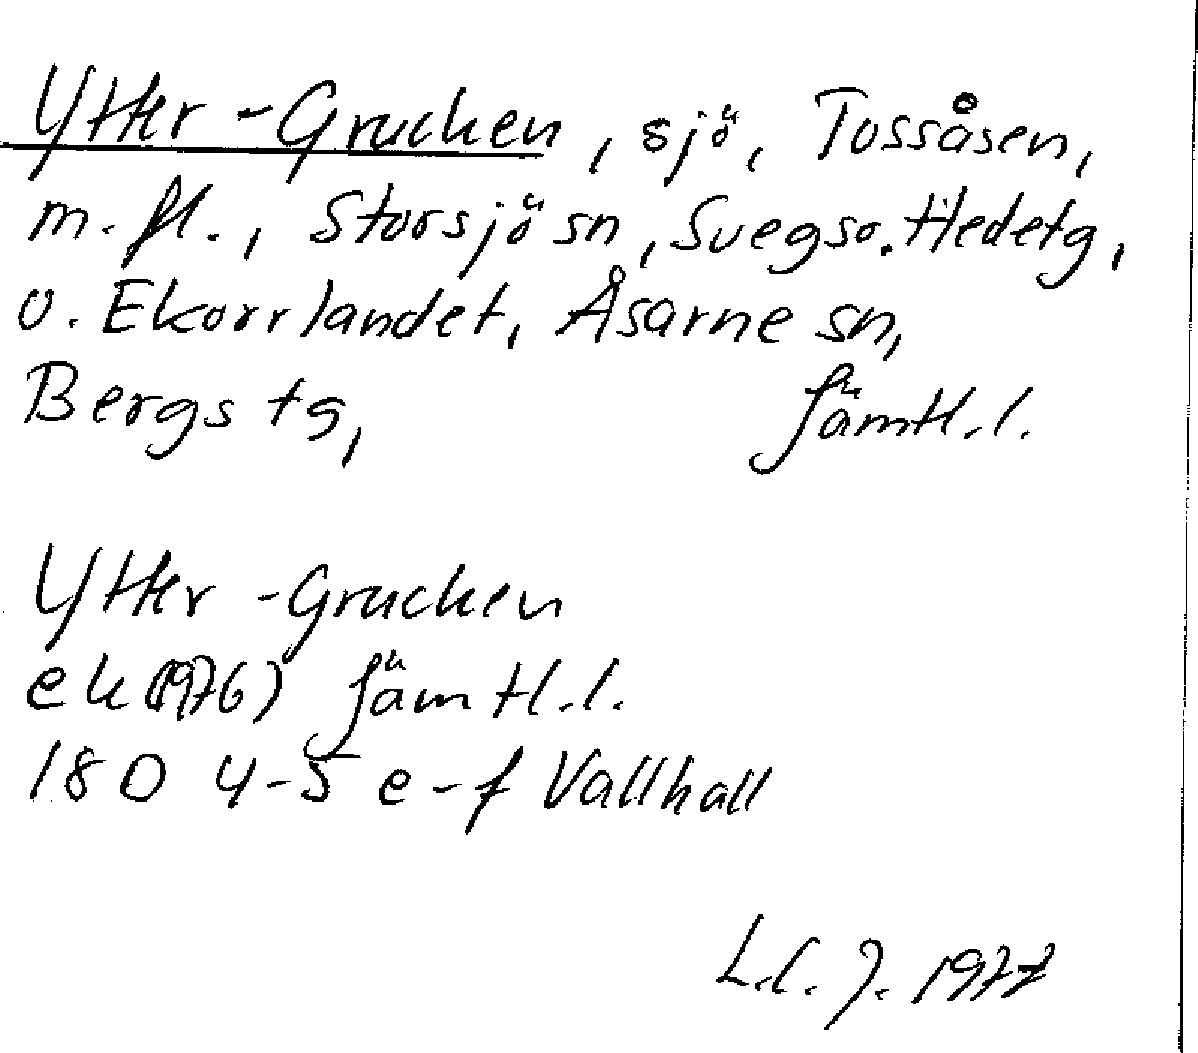 Ytter-Grucken, sjö, Tossåsen,
m.fl., Storsjö sn, Svegs o. Hedetg,
o. Ekorrlandet, Åsarne sn,
Bergs tg, Jämtl.l.
Ytter-Grucken
ek (1976) Jämtl.l.
18D 4-5 e-f Vallhall
L.C.J. 1977